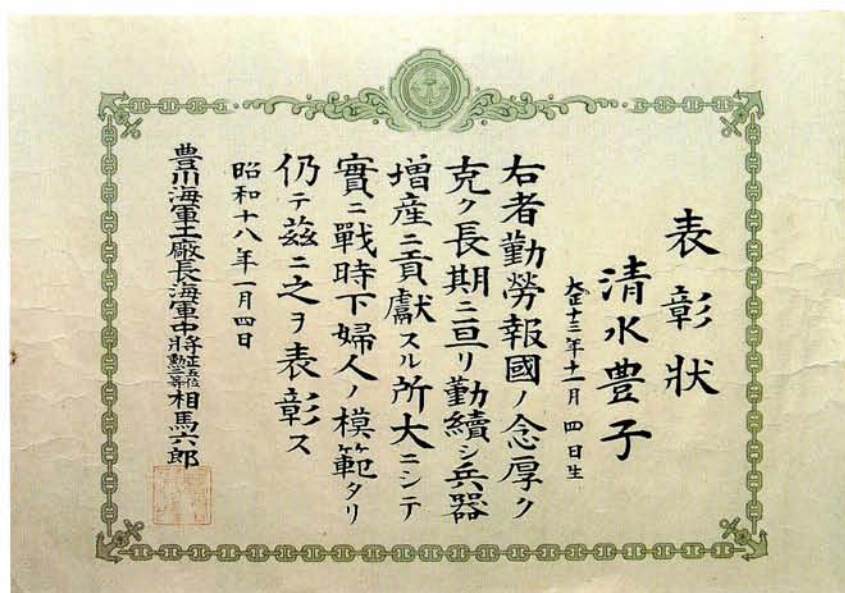 表彰状
清水豊子
大正十三年十一月四日生
右者勤勞報國ノ念厚ク
克ク長期ニ亘リ勤續シ兵器
増産ニ貢獻スル所大ニシテ
實ニ戰時下婦人ノ模範タリ
仍テ茲ニ之ヲ表彰ス
昭和十八年一月四日
豊川海軍工廠長海軍中將正五位勲二等相馬六郎